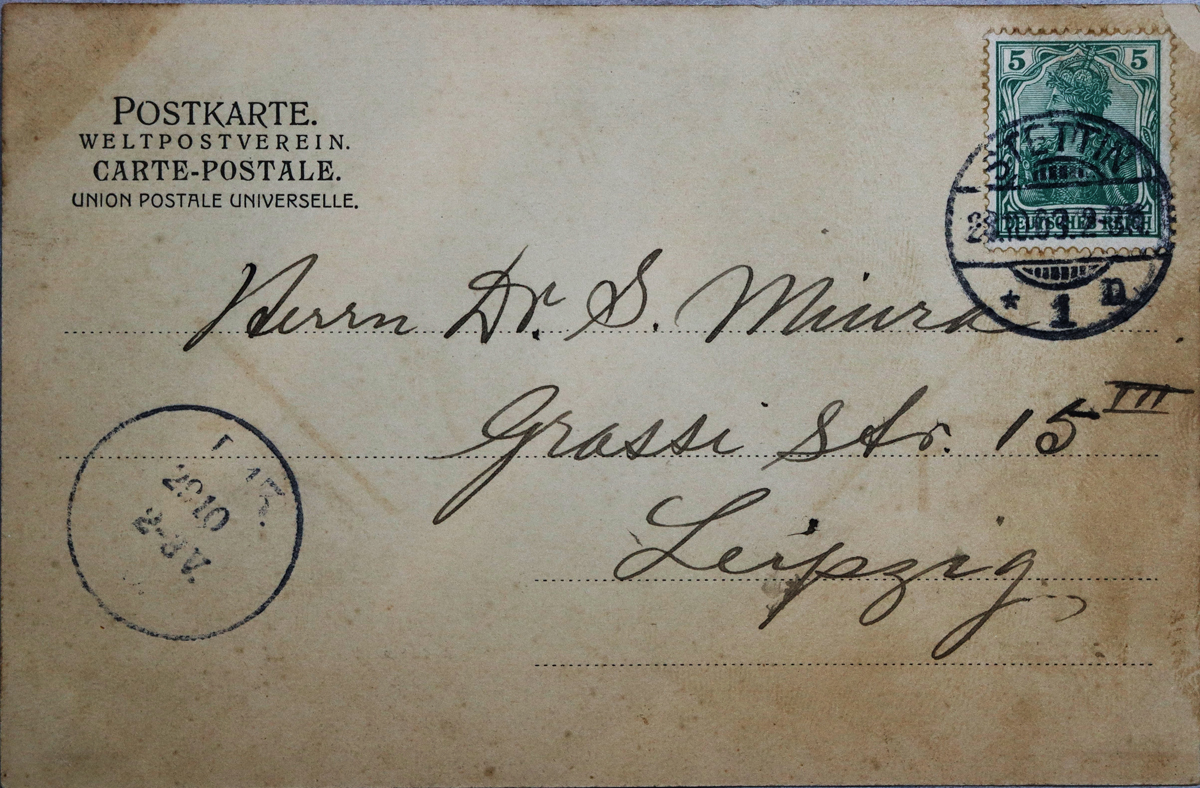 POSTKARTE.
WELTPOSTVEREIN.
CARTE-POSTALE.
UNION POSTALE UNIVERSELLE.
5 5
DEUTSCHES REICH
STETTIN
* 1 n
Herrn Dr. S. Miura
Grassi Str. 15 III
Leipzig